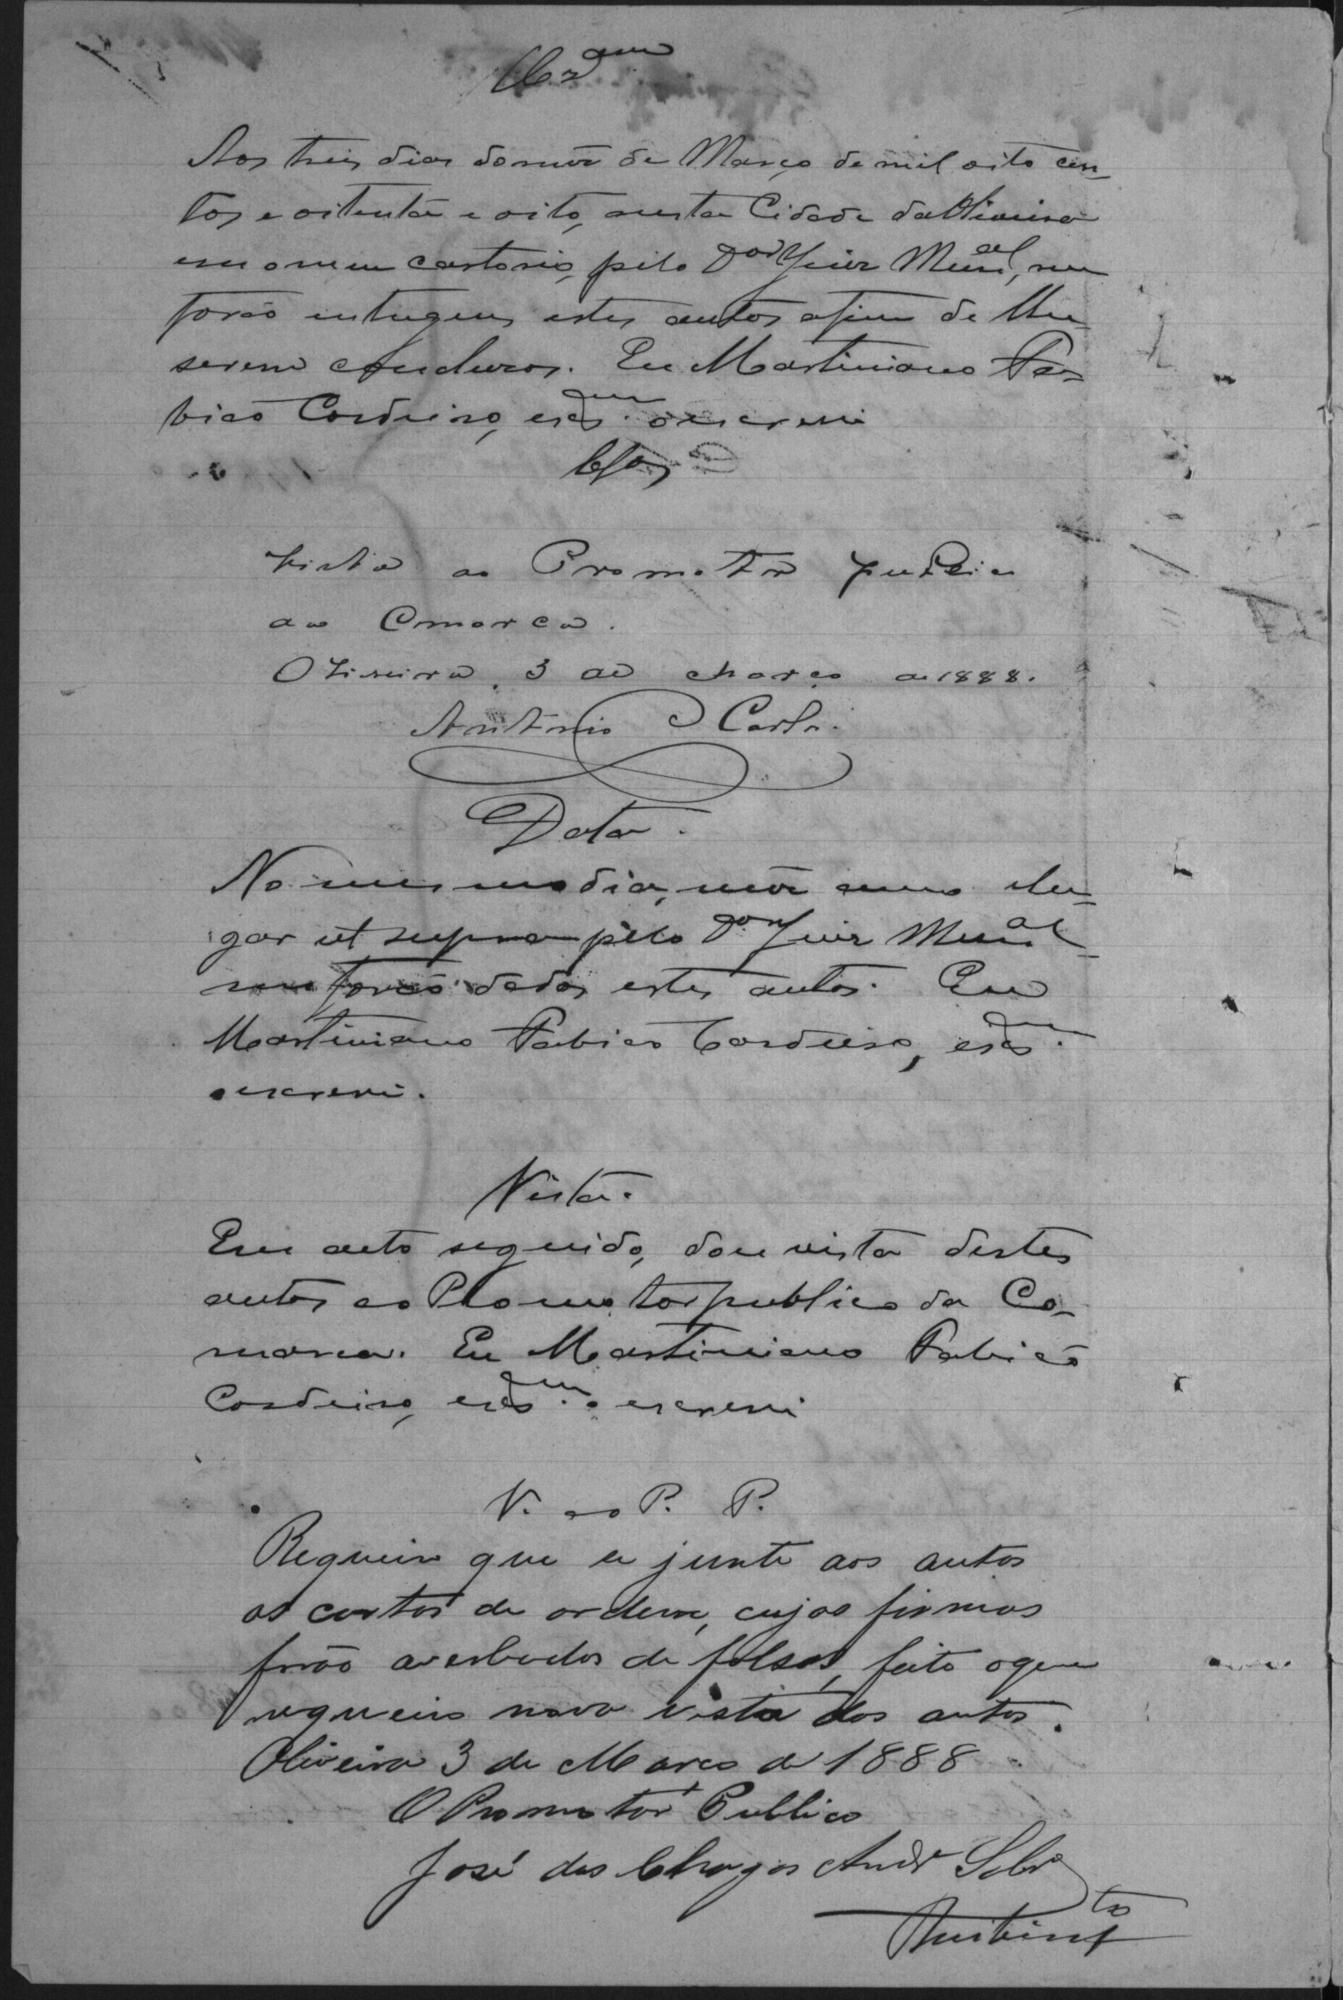 Aos tres dias do mez de Março de mil oito cen-
tos e oitenta e oito, nesta Cidade da Oliveira
em o meu cartorio, pelo Dor Juiz Munal, me
forão entregues estes autos afim de lhe
serem conclusos. Eu Martiniano Fa-
bião Cordeiro, escam o escrevi
Clsos
Vista ao Promotor publico
da Comarca.
Oliveira, 3 de Março de 1888.
Antonio Carlos.
Data.
No mesmo dia, mez anno e lu-
gar ut supra pelo Dor Juiz Munal
me forão dados estes autos. Eu
Martiniano Fabião Cordeiro, escam
o escrevi.
Vista.
Em acto seguido, dou vista destes
autos ao Promotor publico da Co-
marca. Eu Martiniano Fabião
Cordeiro, escam o escrevi
V. ao P. P.
Requeiro que se junte aos autos
as cartas de ordem, cujas firmas
forão averbadas de falsas, feito o que
requeiro nova vista dos autos.
Oliveira 3 de Março de 1888
O Promotor Publico
José das Chagas Andre Sobro